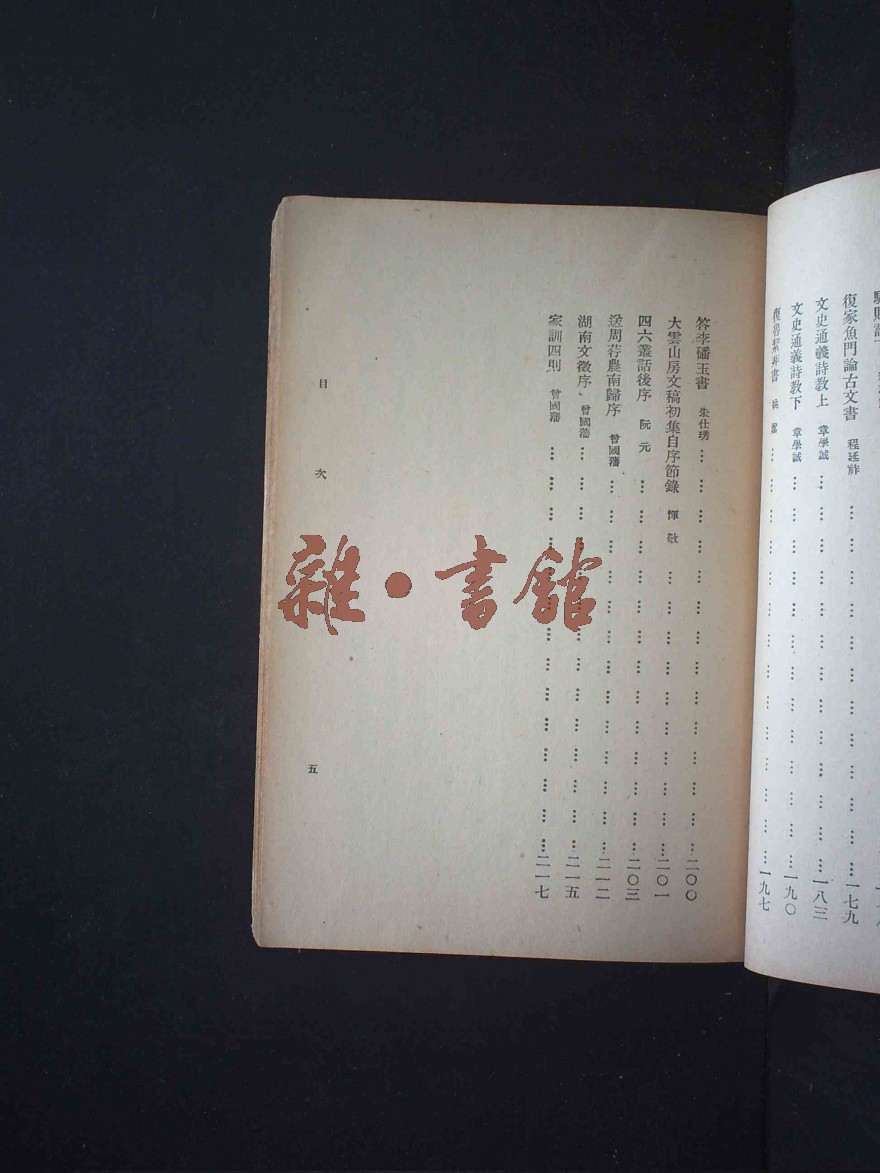 復家魚門論古文書 程廷祚 … … … … … … … … … … … 一七九
文史通義詩教上 章學誠 … … … … … … … … … … … … 一八三
文史通義詩教下 章學誠 … … … … … … … … … … … … 一九〇
復魯絜非書 姚鼐 … … … … … … … … … … … … … 一九七
答李磻玉書 朱仕琇 … … … … … … … … … … … … … 二〇〇
大雲山房文稿初集自序節錄 惲敬 … … … … … … … … … … 二〇一
四六叢話後序 阮元 … … … … … … … … … … … … 二〇三
送周荇農南歸序 曾國藩 … … … … … … … … … … … … 二一二
湖南文徵序 曾國藩 … … … … … … … … … … … … … 二一五
家訓四則 曾國藩 … … … … … … … … … … … … … 二一七
目次
五
雜·書館